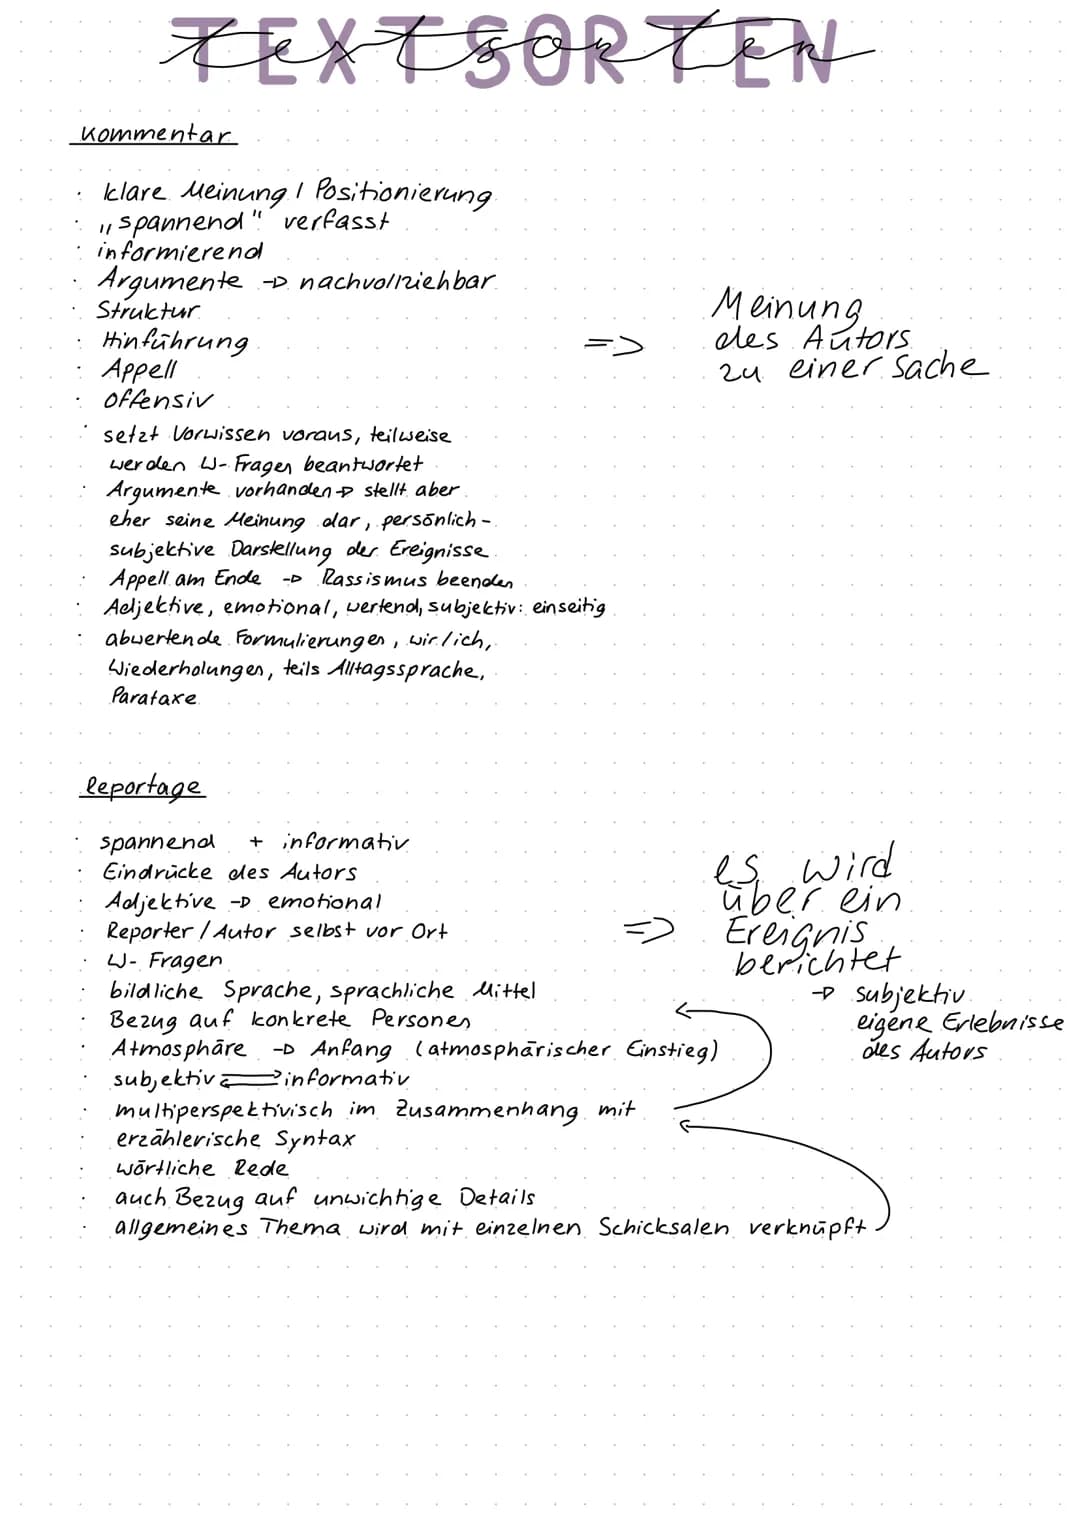 TEXTSORTEN
textsorten
Kommentar
· klare Meinung / Positionierung
· „spannend" verfasst
· informierend
· Argumente -> nachvollziehbar
· Struktur
· Hinführung
· Appell
· offensiv
· setzt Vorwissen voraus, teilweise
werden W-Fragen beantwortet
· Argumente vorhanden -> stellt aber
eher seine Meinung dar, persönlich-
subjektive Darstellung der Ereignisse
· Appell am Ende -> Rassismus beenden
· Adjektive, emotional, wertend, subjektiv: einseitig
· abwertende Formulierungen, wir/ich,
Wiederholungen, teils Alltagssprache,
Parataxe
=> Meinung
des Autors
zu einer Sache
Reportage
· spannend + informativ
· Eindrücke des Autors
· Adjektive -> emotional
· Reporter / Autor selbst vor Ort
· W-Fragen
· bildliche Sprache, sprachliche Mittel
· Bezug auf konkrete Personen
· Atmosphäre -> Anfang (atmosphärischer Einstieg)
· subjektiv ⇄ informativ
· multiperspektivisch im Zusammenhang mit
· erzählerische Syntax
· wörtliche Rede
· auch Bezug auf unwichtige Details
· allgemeines Thema wird mit einzelnen Schicksalen verknüpft
=> es wird
über ein
Ereignis
berichtet
-> subjektiv
eigene Erlebnisse
des Autors